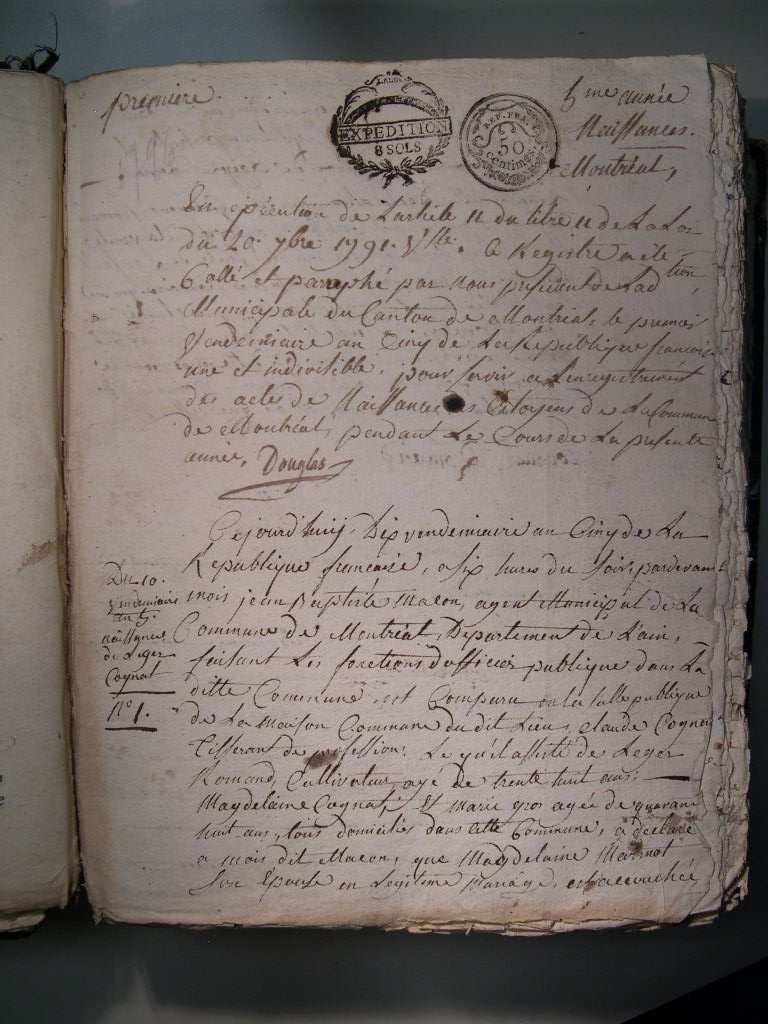 premiere.
EXPEDITION
8 SOLS
REP. FRA.
50
centimes
5me année
Naissances.
Montréal,
En exécution de Larticle 11 du titre 11 de La Loi
du 20. 7bre 1791. Ce Registre a été
Cotté et parrephé par nous président de Lad
tion
Municipale du Canton de Montréal, le premier
Vendemiaire an Cinq de La Republique francoise
une et indivisible, pour servir a Lenregistrement
des actes de Naissances des Citoyens de La Commune
de Montréal, pendant Le Cours de La présente
année, Douglas
Cejourd'huij Dix vendemiaire an Cinq de La
Republique francaise, a six heures du soir, pardevant
mois jean Baptiste Macon, agent Municipal de La
Commune de Montréal, Département de L'ain,
faisant Les fonctions d'officier publique dans La
ditte Commune, est Comparu en la salle publique
de La maison Commune du dit Lieu, claude Cognat
Tisserant de profession. Le quel assisté de Leger
Romand, Cultivateur, agé de trente huit ans:
Magdelaine Cognat, Et marie gros agée de quarant
huit ans, tous domiciliés dans cette Commune, a déclaré
a mois dit Macon, que Magdelaine Marmot
son Epouse en Legitime Mariage, est accouchée
Du 10.
Vendemiaire
an 5.
naissance
de Leger
Cognat
No 1.